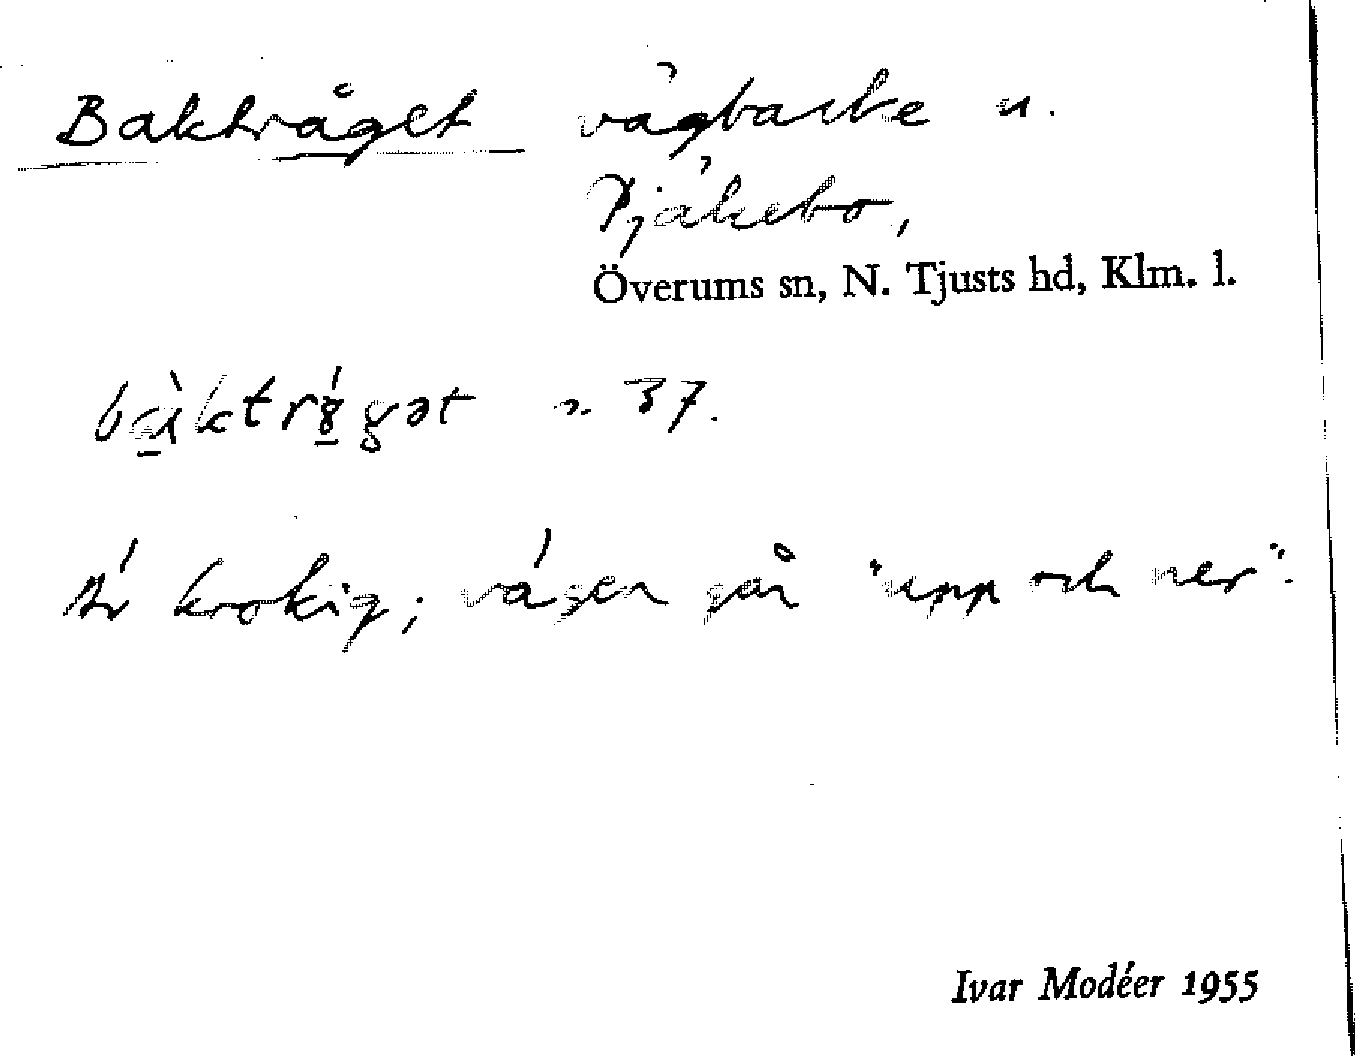 Baktråget vägbacke u.
Pjäkebo,
Överums sn, N. Tjusts hd, Klm. l.
37.
Är krokig; vägen går "upp och ner".
Ivar Modéer 1955